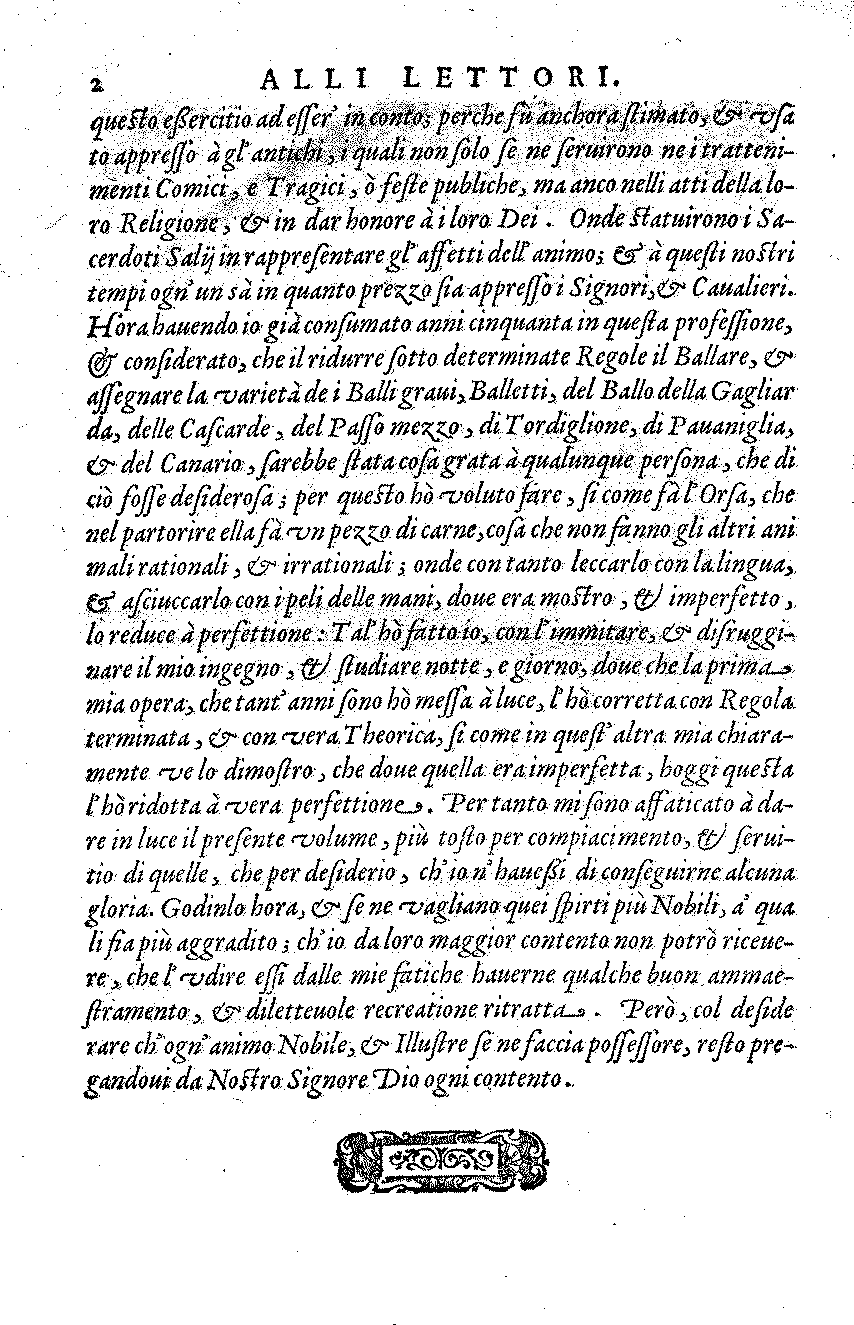 2 ALLI LETTORI.
questo eßercitio ad esser' in conto; perche fù anchora stimato, & vsa
to appresso à gl'antichi, i quali non solo se ne seruirono ne i tratteni-
menti Comici, e Tragici, ò feste publiche, ma anco nelli atti della lo-
ro Religione, & in dar honore à i loro Dei. Onde statuirono i Sa-
cerdoti Salij in rappresentare gl'affetti dell'animo; & à questi nostri
tempi ogn'un sà in quanto prezzo sia appresso i Signori, & Caualieri.
Hora hauendo io già consumato anni cinquanta in questa professione,
& considerato, che il ridurre sotto determinate Regole il Ballare, &
assegnare la varietà de i Balli graui, Balletti, del Ballo della Gagliar
da, delle Cascarde, del Passo mezzo, di Tordiglione, di Pauaniglia,
& del Canario, sarebbe stata cosa grata à qualunque persona, che di
ciò fosse desiderosa; per questo hò voluto fare, si come fà l'Orsa, che
nel partorire ella fà vn pezzo di carne, cosa che non fanno gli altri ani
mali rationali, & irrationali; onde con tanto leccarlo con la lingua,
& asciuccarlo con i peli delle mani, doue era mostro, & imperfetto,
lo reduce à perfettione: Tal'hò fatto io, con l'immitare, & disruggi-
nare il mio ingegno, & studiare notte, e giorno, doue che la prima
mia opera, che tant'anni sono hò messa à luce, l'hò corretta con Regola
terminata, & con vera Theorica, si come in quest'altra mia chiara-
mente ve lo dimostro, che doue quella era imperfetta, hoggi questa
l'hò ridotta à vera perfettione. Per tanto mi sono affaticato à da-
re in luce il presente volume, più tosto per compiacimento, & serui-
tio di quelle, che per desiderio, ch'io n'haueßi di conseguirne alcuna
gloria. Godinlo hora, & se ne vagliano quei spirti più Nobili, a' qua
li fia più aggradito; ch'io da loro maggior contento non potrò riceue-
re, che l'vdire essi dalle mie fatiche hauerne qualche buon ammae-
stramento, & diletteuole recreatione ritratta. Però, col deside
rare ch'ogn'animo Nobile, & Illustre se ne faccia possessore, resto pre-
gandoui da Nostro Signore Dio ogni contento.